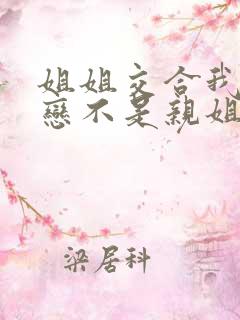 姐姐交合我
戀不是親姐
梁居科